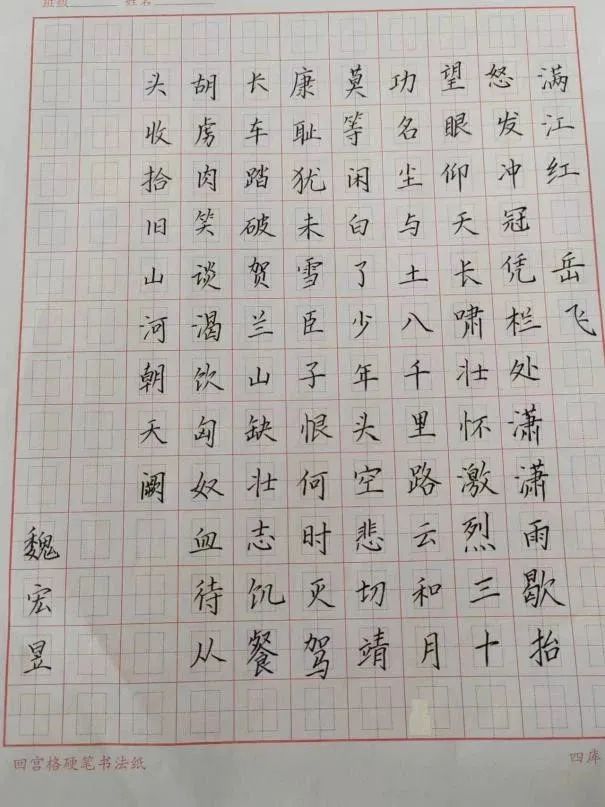 班级 姓名
满江红
岳飞
怒发冲冠凭栏处潇潇雨歇抬
望眼仰天长啸壮怀激烈三十
功名尘与土八千里路云和月
莫等闲白了少年头空悲切靖
康耻犹未雪臣子恨何时灭驾
长车踏破贺兰山缺壮志饥餐
胡虏肉笑谈渴饮匈奴血待从
头收拾旧山河朝天阙
魏宏昱
回宫格硬笔书法纸
四库